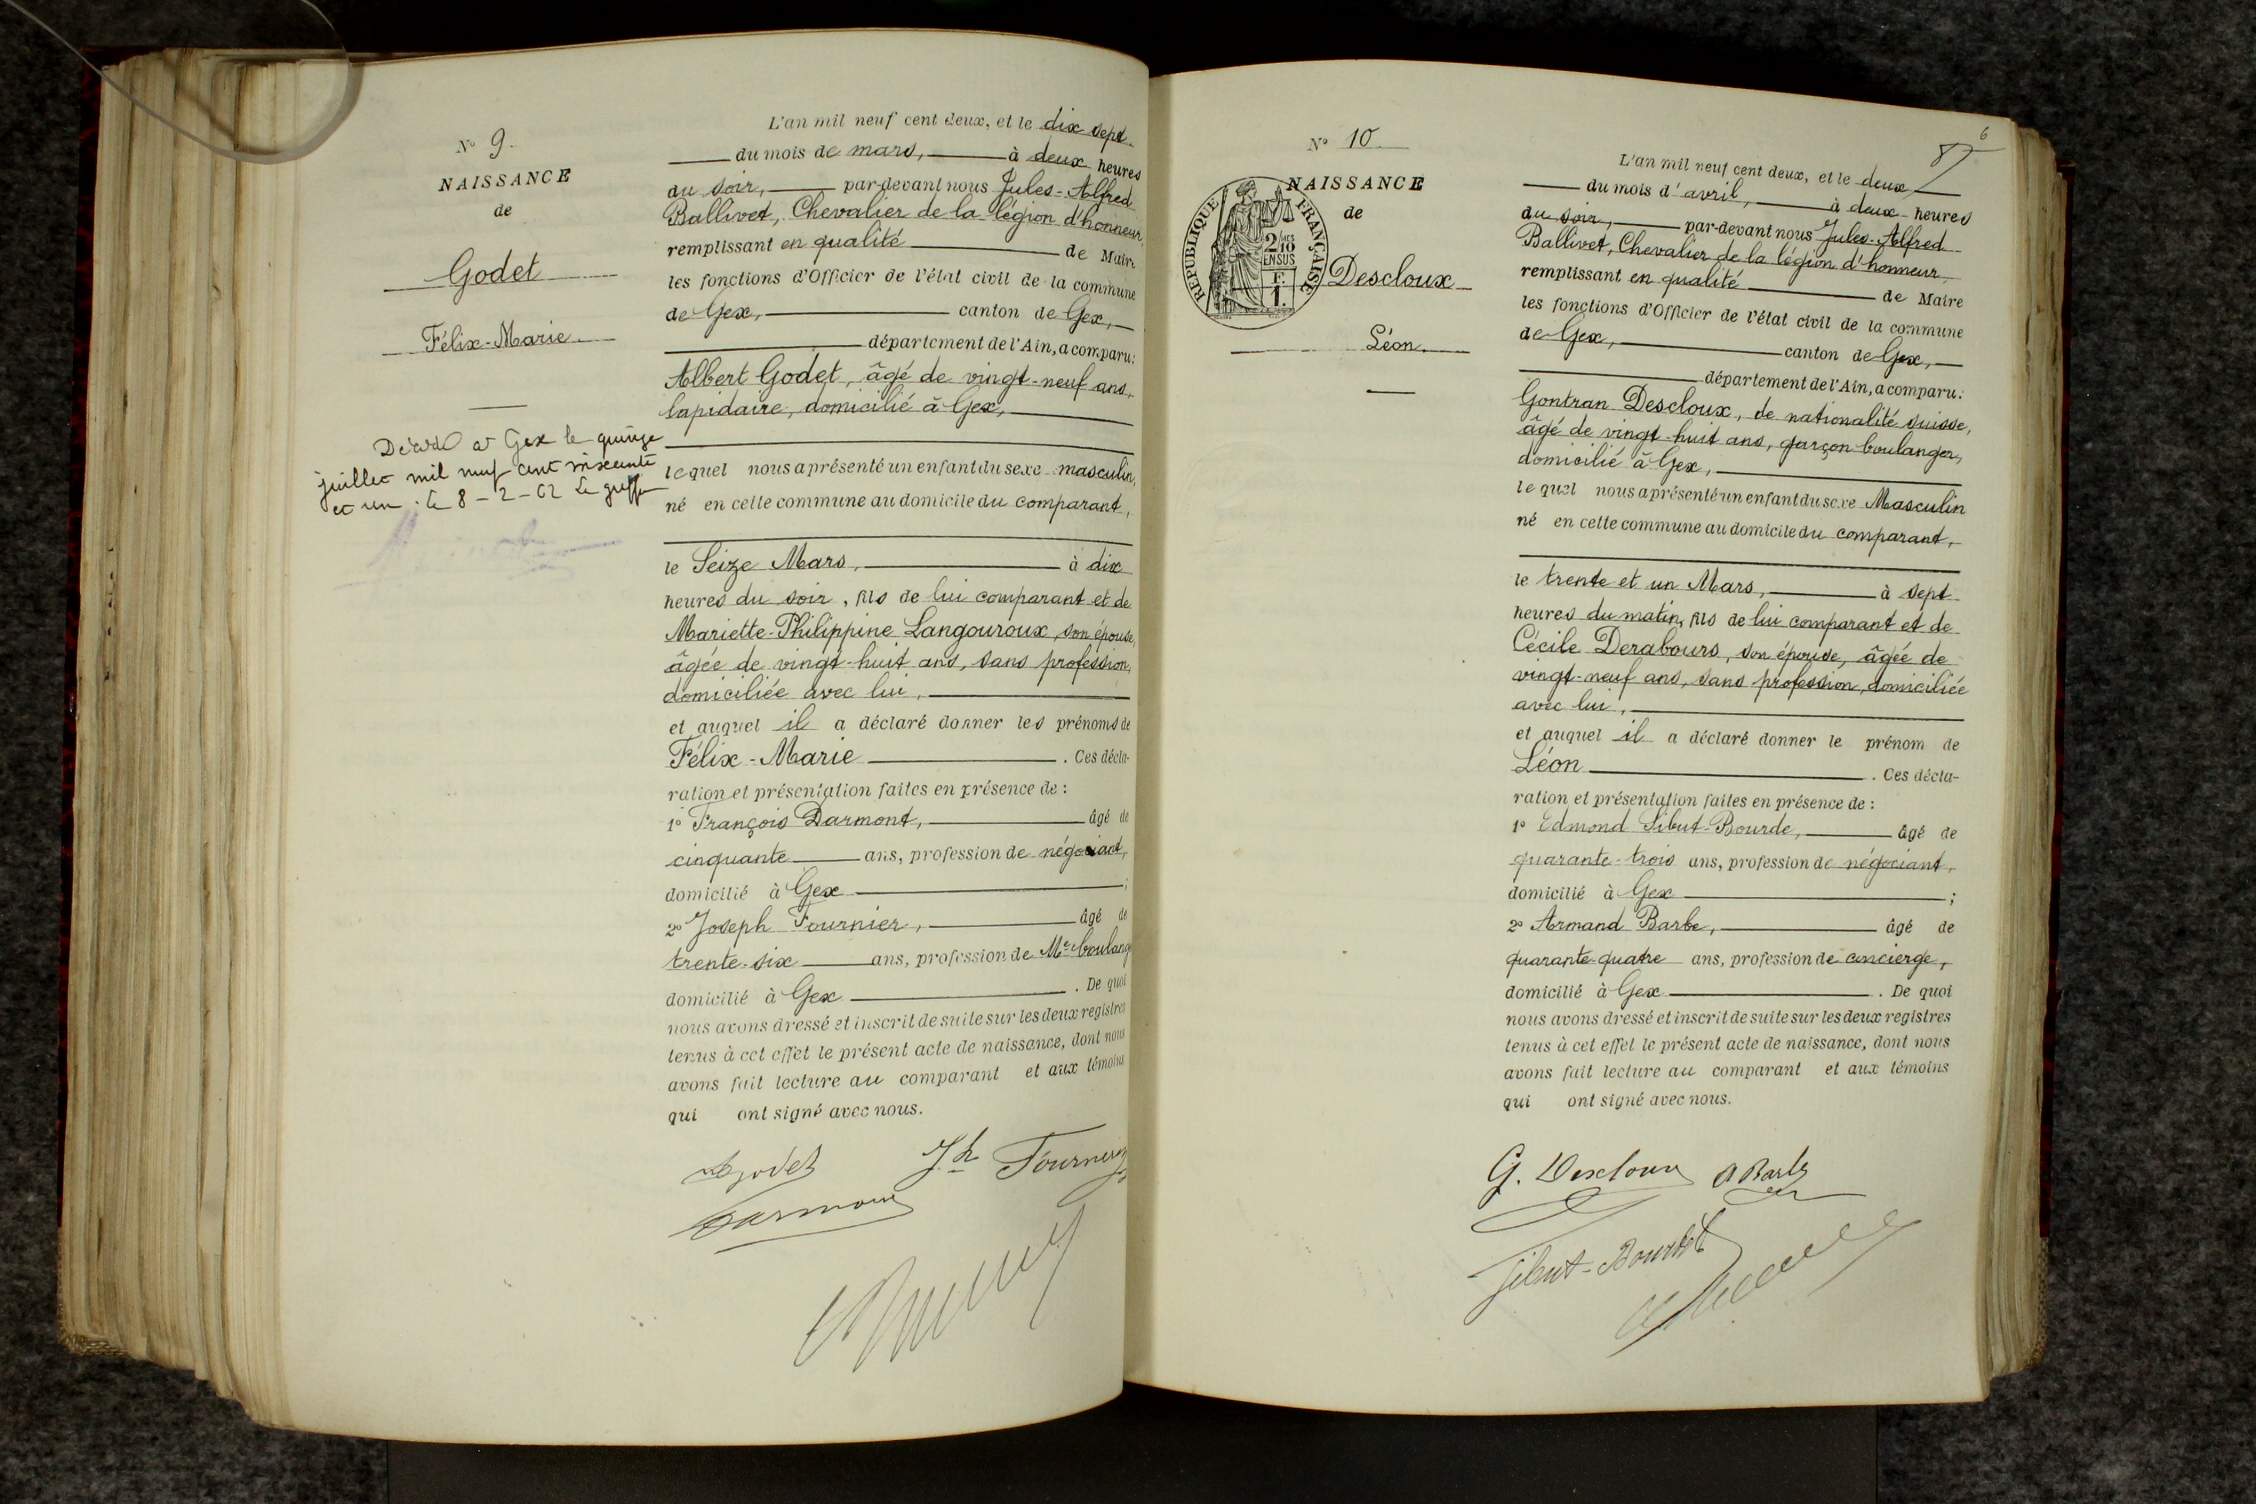 N° 9.
NAISSANCE
de
Godet
Félix-Marie
Décédé à Gex le quinze
juillet mil neuf cent soixante
et un : le 8-2-62 Le greffier
L'an mil neuf cent deux, et le dix sept
du mois de mars, à deux heures
du soir, par-devant nous Jules-Alfred
Ballivet, Chevalier de la légion d'honneur,
remplissant en qualité de Maire
les fonctions d'Officier de l'état civil de la commune
de Gex, canton de Gex,
département de l'Ain, a comparu:
Albert Godet, âgé de vingt-neuf ans,
lapidaire, domicilié à Gex,
lequel nous a présenté un enfant du sexe masculin,
né en cette commune au domicile du comparant,
le Seize Mars, à dix
heures du soir, fils de lui comparant et de
Mariette-Philippine Langouroux, son épouse,
âgée de vingt-huit ans, sans profession,
domiciliée avec lui,
et auquel il a déclaré donner les prénoms de
Félix-Marie. Ces décla-
ration et présentation faites en présence de :
1° François Darmont, âgé de
cinquante ans, profession de négociant,
domicilié à Gex ;
2° Joseph Fournier, âgé de
trente-six ans, profession de Me boulang
domicilié à Gex. De quoi
nous avons dressé et inscrit de suite sur les deux registres
tenus à cet effet le présent acte de naissance, dont nous
avons fait lecture au comparant et aux témoins
qui ont signé avec nous.
Godet Jh Fournier
Darmont
6
87
N° 10
NAISSANCE
de
RÉPUBLIQUE FRANÇAISE
2/10
EN SUS
F.
1.
Descloux
Léon.
L'an mil neuf cent deux, et le deux
du mois d'avril, à deux heures
du soir, par-devant nous Jules-Alfred
Ballivet, Chevalier de la légion d'honneur
remplissant en qualité de Maire
les fonctions d'Officier de l'état civil de la commune
de Gex, canton de Gex,
département de l'Ain, a comparu:
Gontran Descloux, de nationalité suisse,
âgé de vingt-huit ans, garçon boulanger,
domicilié à Gex,
lequel nous a présenté un enfant du sexe Masculin
né en cette commune au domicile du comparant,
le trente et un Mars, à sept
heures du matin, fils de lui comparant et de
Cécile Derabours, son épouse, âgée de
vingt-neuf ans, sans profession, domiciliée
avec lui,
et auquel il a déclaré donner le prénom de
Léon. Ces décla-
ration et présentation faites en présence de :
1° Edmond Sibut-Bourde, âgé de
quarante-trois ans, profession de négociant,
domicilié à Gex ;
2° Armand Barbe, âgé de
quarante-quatre ans, profession de concierge,
domicilié à Gex. De quoi
nous avons dressé et inscrit de suite sur les deux registres
tenus à cet effet le présent acte de naissance, dont nous
avons fait lecture au comparant et aux témoins
qui ont signé avec nous.
G. Descloux A Barbe
Sibut-Bourde